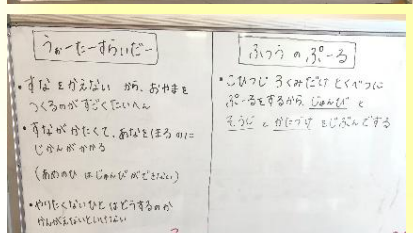 うぉーたーすらいだー
・すなをかえない から、おやまを
つくるのがすごくたいへん
・すながかたくて、あなをほるのに
じかんがかかる
(あめのひ はじゅんびができない)
・やりたくないひと はどうするのか
かんがえないといけない
ふつうのぷーる
・こひつじ ろくみだけ とくべつに
ぷーるをするから、じゅんび と
そうじ と かたづけ をじぶんでする